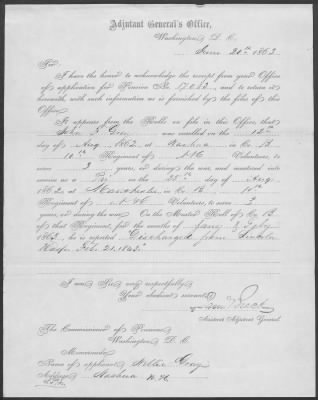 Adjutant General's Office,
Washington D. C.
June 20th 1863
Sir:
I have the honor to acknowledge the receipt from your Office
of application for Pension No. 17.052, and to return it
herewith, with such information as is furnished by the files of this
Office.
It appears from the Rolls on file in this Office, that
John S. Gray was enrolled on the 12th
day of Aug, 1862, at Nashua in Co. B
10th Regiment of N.H. Volunteers, to
serve 3 years, or during the war, and mustered into
service as a Pri on the 28th day of Aug,
1862, at Manchester, in Co. B. 10th
Regiment of N.H. Volunteers, to serve 3
years, or during the war. On the Muster Roll of Co. B.
of that Regiment, for the months of Jany & Feby
1863, he is reported "Discharged from Lincoln
Hosp. Feb. 21. 1863."
I am Sir very respectfully
Your obedient servant,
Assistant Adjutant General.
The Commissioner of Pensions
Washington D. C.
Memoranda:
Name of applicant Gray
Address Nashua N.H.